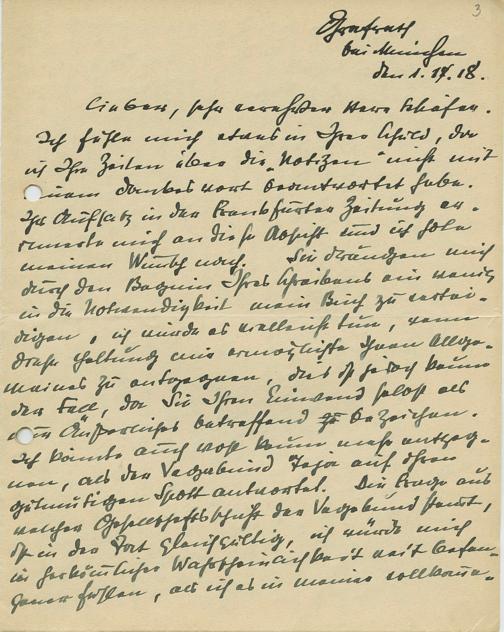 3
Grafrath
bei München
den 1. IX. 18.
Lieber, sehr verehrter Herr Schäfer.
Ich fühle mich etwas in Ihrer Schuld, da
ich Ihre Zeilen über die "Notizen" nicht mit
einem Dankeswort beantwortet habe.
Ihr Aufsatz in der Frankfurter Zeitung er-
innerte mich an diese Absicht und ich hole
meinen Wunsch nach. Sie drängen mich
durch den Beginn Ihres Schreibens ein wenig
in die Notwendigkeit mein Buch zu vertei-
digen, ich würde es vielleicht tun, wenn
diese Haltung mir ermöglichte Ihnen Allge-
meines zu entgegnen, dies ist jedoch kaum
der Fall, da Sie Ihren Einwand selbst als
ein Äußerliches betreffend bezeichn.
Ich könnte auch wohl kaum mehr entgeg-
nen, als der Vagabund Jaja auf Ihren
gütmütigen Spott antwortet. Die Frage aus
welcher Gesellschaftsschicht der Vagabund stammt,
ist in der Tat gleichgültig, ich würde mich
in herkömmlicher Wahrscheinlichkeit weit befan-
gener fühlen, als ich es in meiner vollkomm-